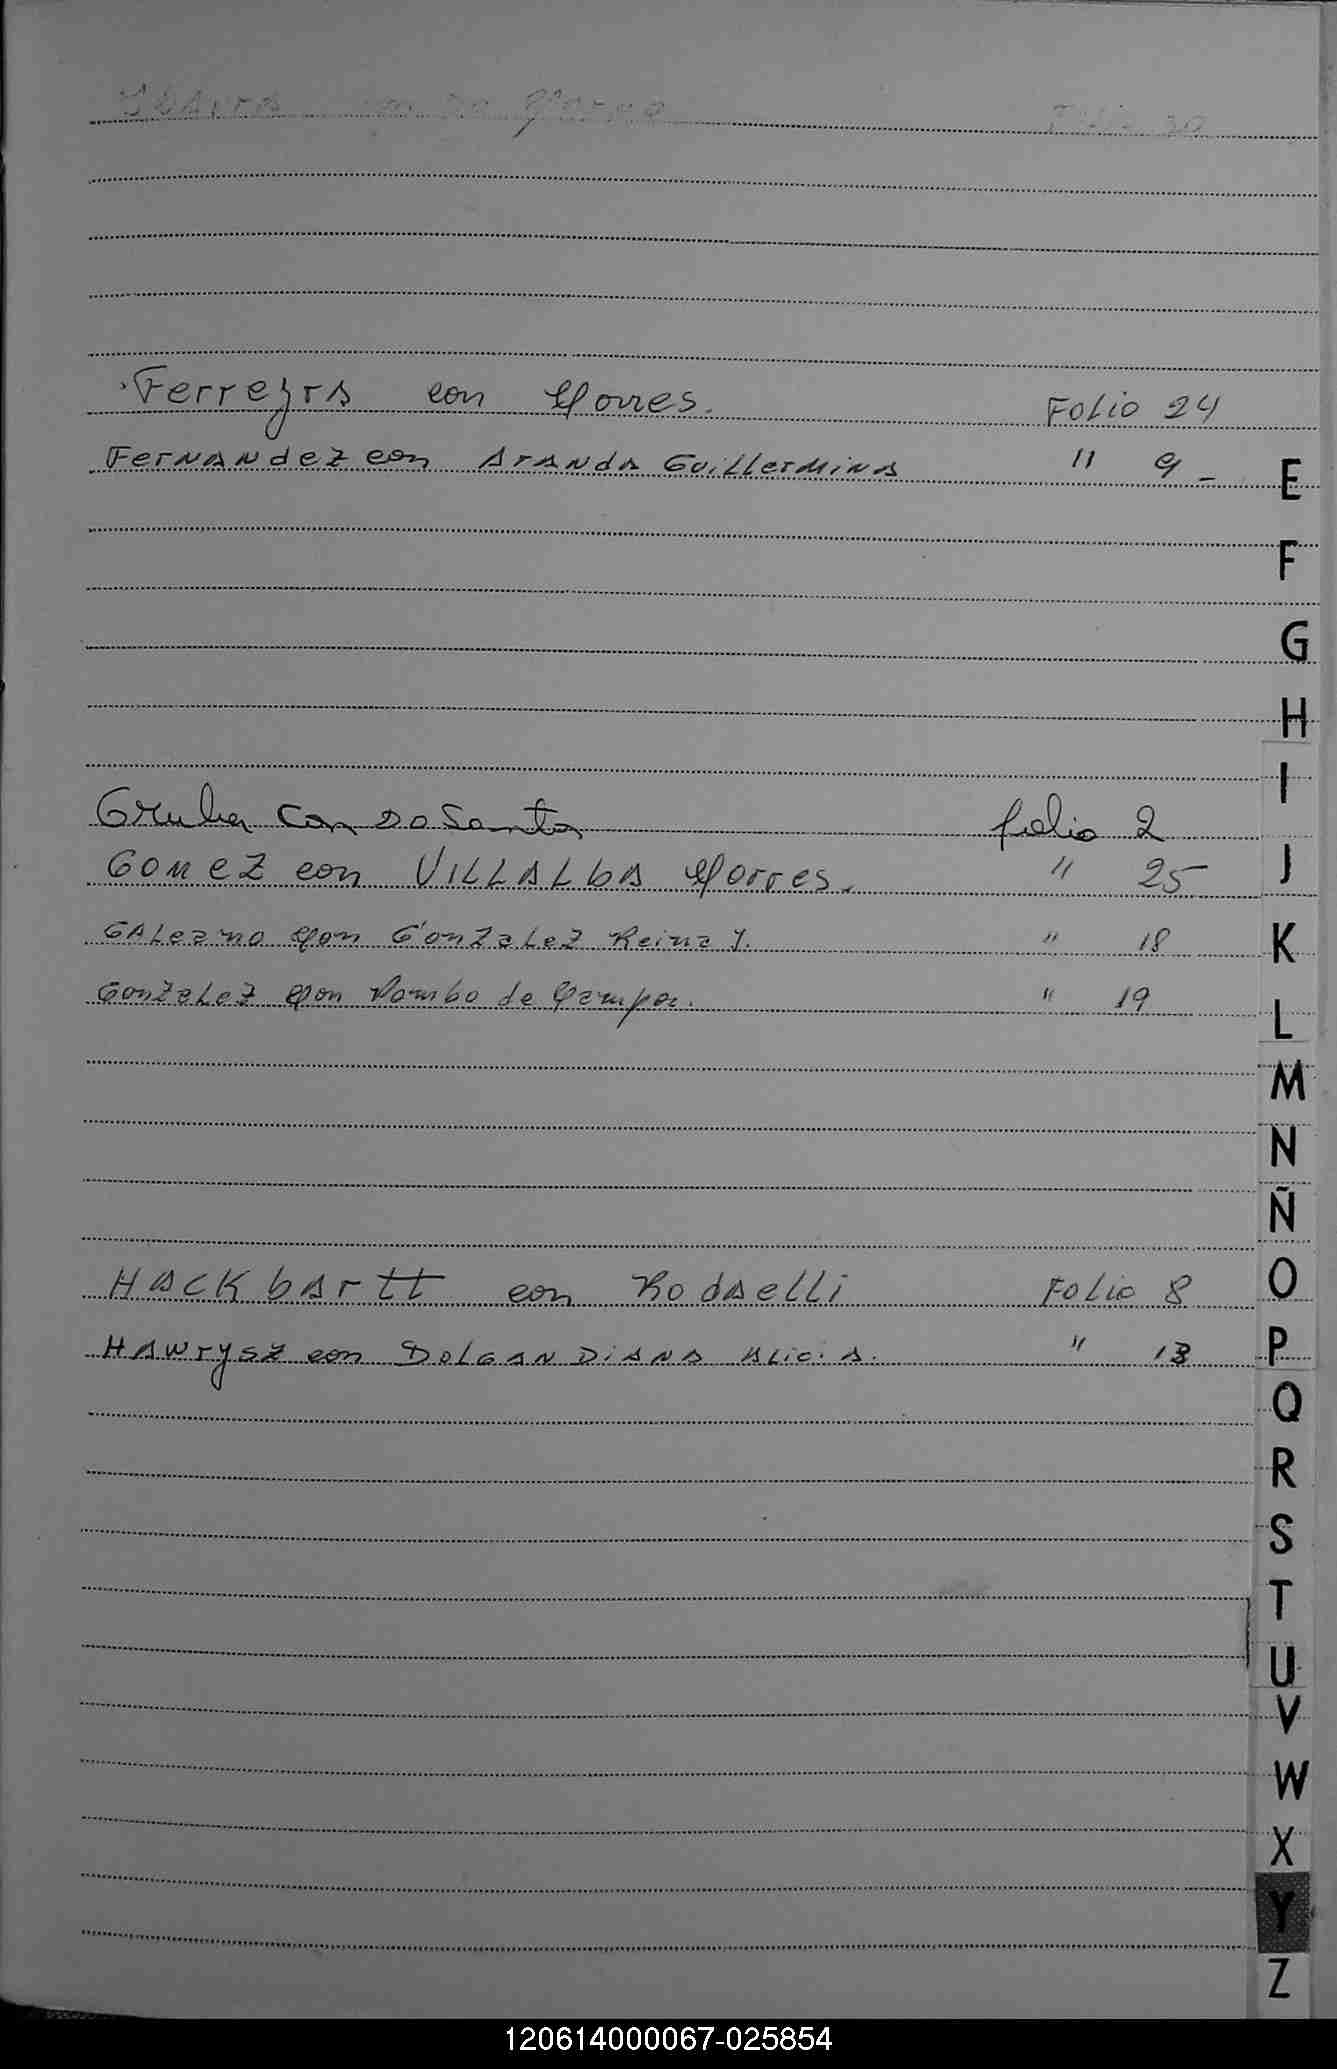 Ferreyra con Torres. Folio 24
Fernandez con Aranda Guillermina " 9 -
E
F
G
H
I
Gruber con Do Santo folio 2
Gomez con VILLALBA Torres. " 25
J
Galeano con Gonzalez Reina Y. " 18
K
Gonzalez con Pombo de " 19
L
M
N
Ñ
Hackbartt con Rodaelli Folio 8
O
Hawrysz con Dolgan Diana Alicia. " 13
P
Q
R
S
T
U
V
W
X
Y
Z
120614000067-025854